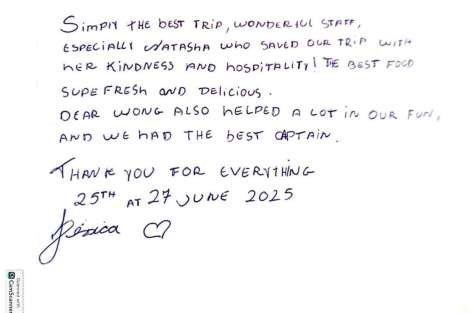 SIMPLY THE BEST TRIP, WONDERFUL STAFF,
ESPECIALLY NATASHA WHO SAVED OUR TRIP WITH
HER KINDNESS AND HOSPITALITY! THE BEST FOOD
SUPE FRESH AND DELICIOUS.
DEAR WONG ALSO HELPED A LOT IN OUR FUN,
AND WE HAD THE BEST CAPTAIN.
THANK YOU FOR EVERYTHING
25TH AT 27 JUNE 2025
Jéssica
Scanned with
CamScanner